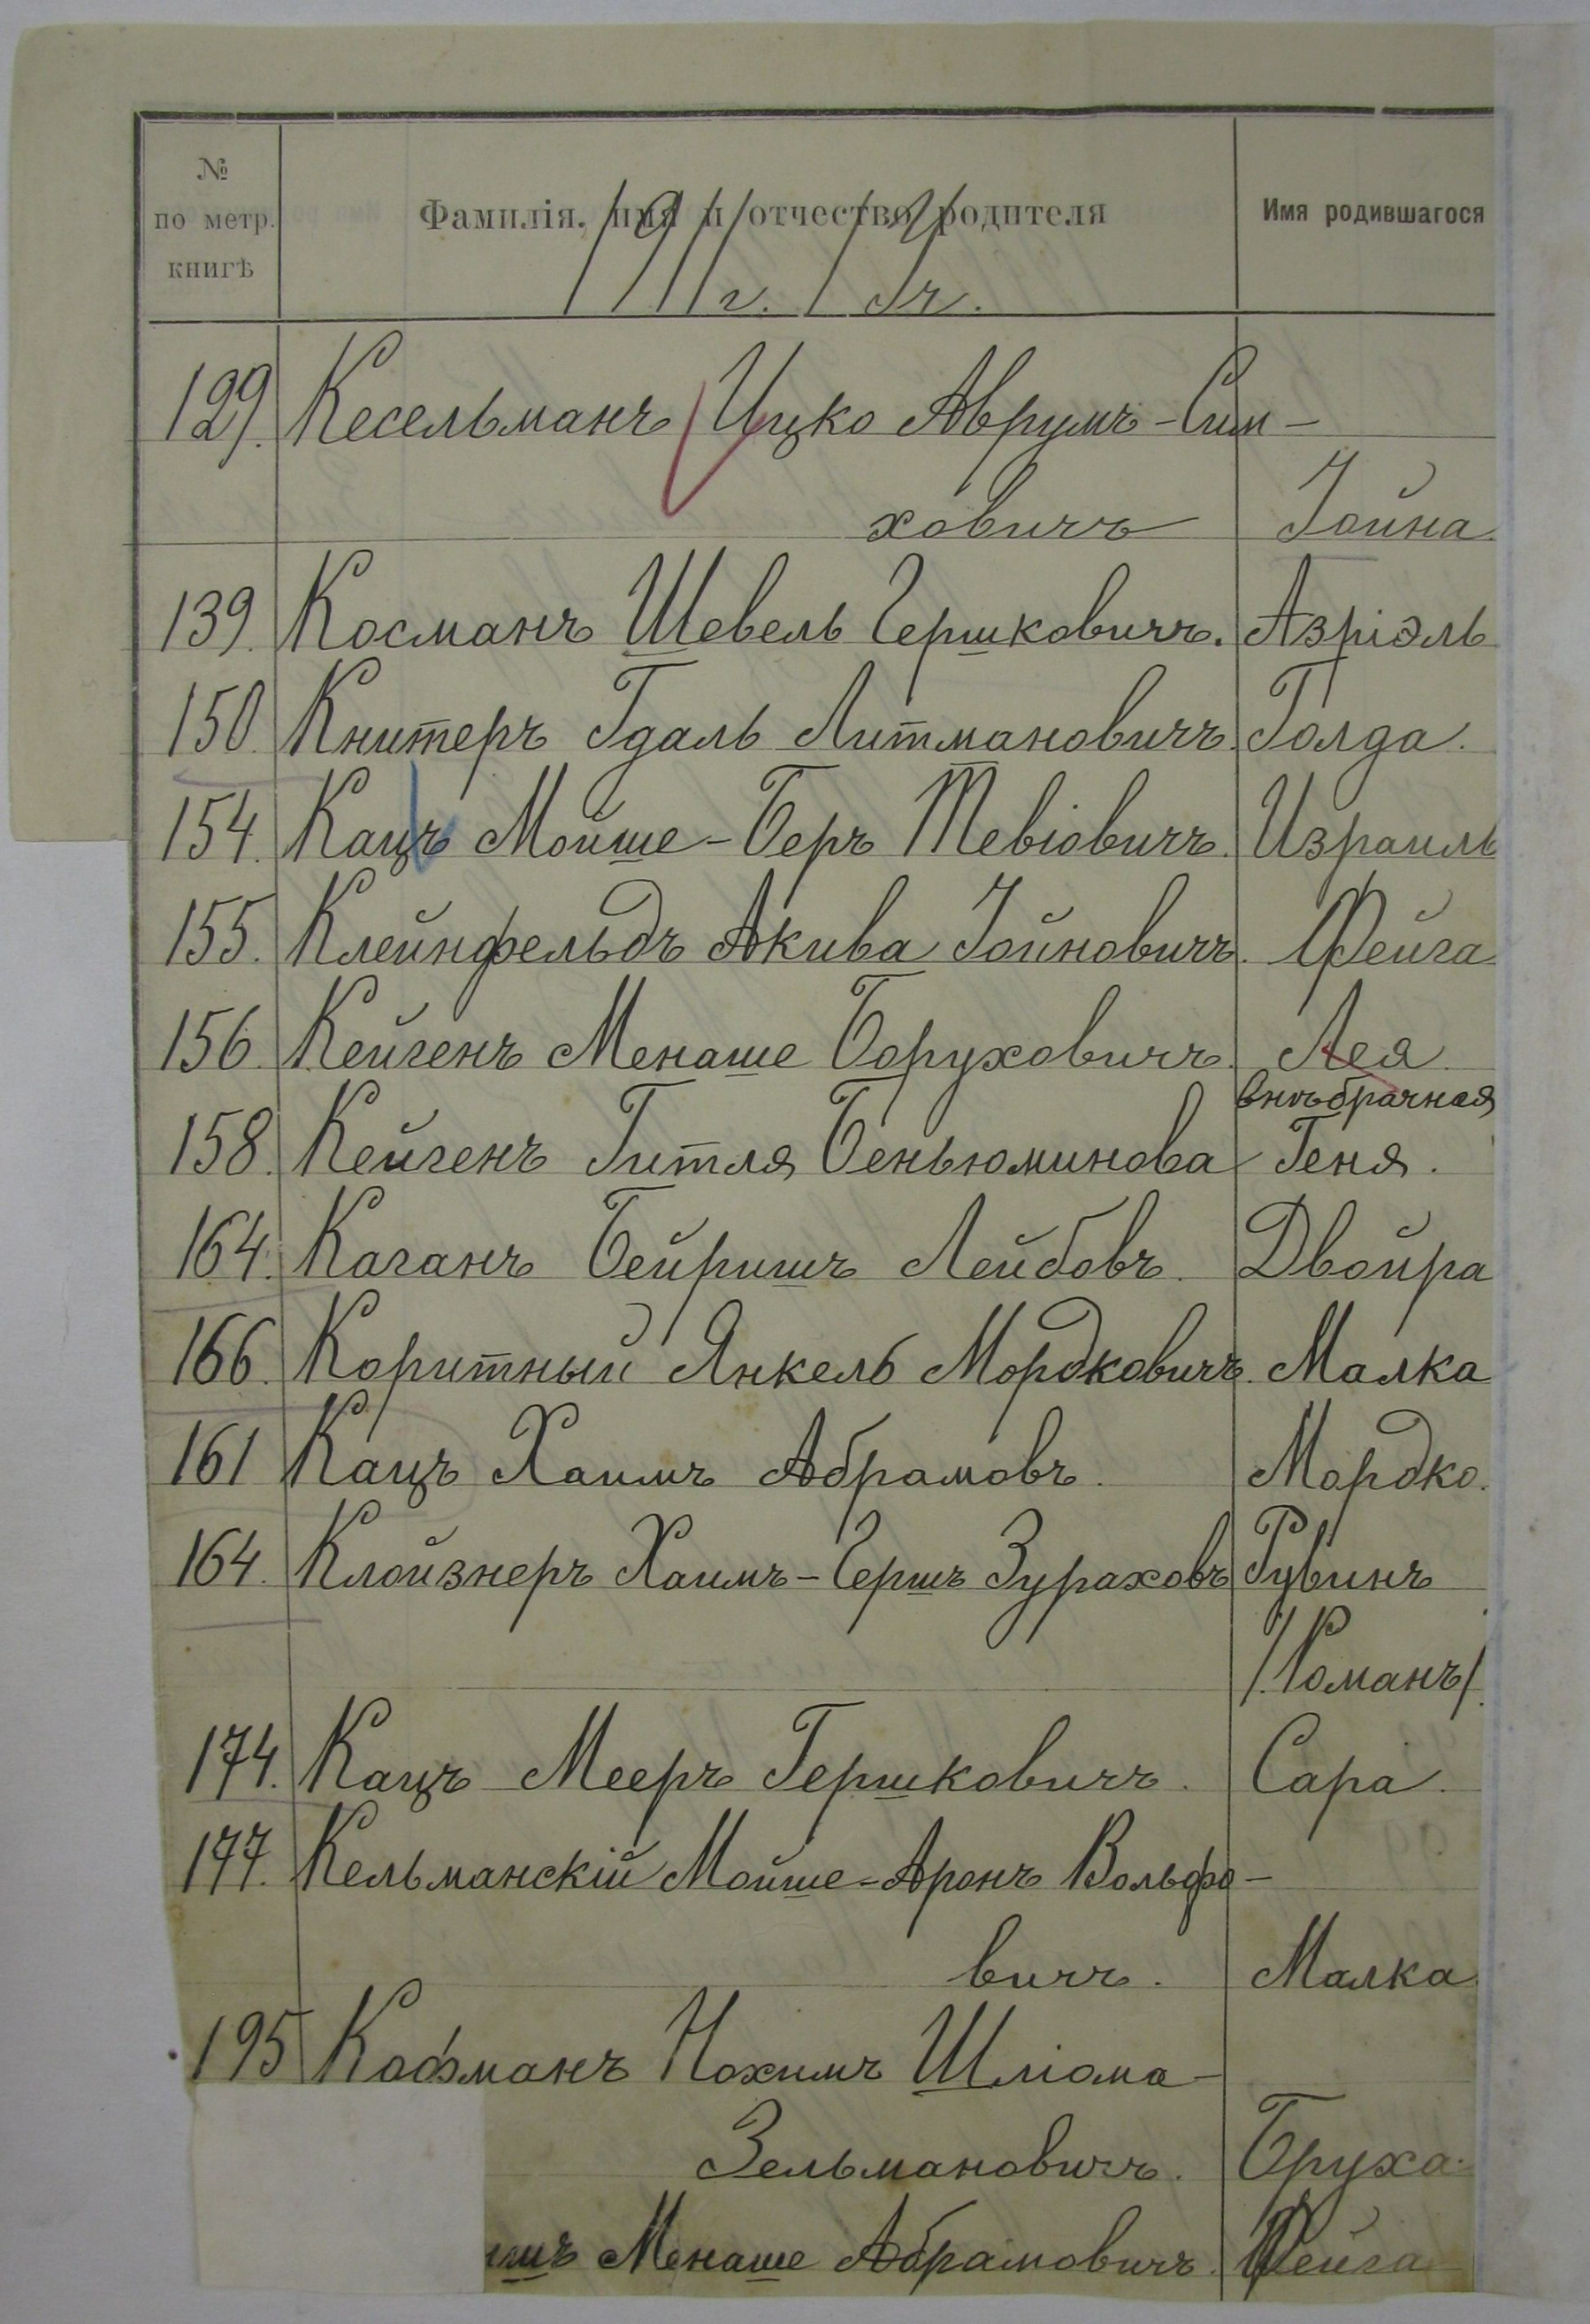 №
по метр.
книгѣ
Фамилія, имя и отчество родителя
Имя родившагося
1911 г. I ч.
129. Кесельманъ Ицко Аврумъ-Сим-
ховичъ Іойна.
139. Косманъ Шевель Гершковичъ. Азріэль
150. Книтеръ Гдаль Литмановичъ. Голда.
154. Кацъ Мойше-Беръ Тевіовичъ. Израиль
155. Клейнфельдъ Акива Іойновичъ. Фейга
156. Кейгенъ Менаше Боруховичъ. Лея
внѣбрачная
158. Кейгенъ Гитля Беньюминова Геня.
164. Каганъ Бейришъ Лейбовъ. Двойра
166. Коритный Янкель Мордковичъ. Малка
161 Кацъ Хаимъ Абрамовъ. Мордко.
164. Клойзнеръ Хаимъ-Гершъ Зураховъ Рувинъ
/Романъ/.
174. Кацъ Мееръ Гершковичъ. Сара.
177. Кельманскій Мойше-Аронъ Вольфо-
вичъ. Малка
195 Кофманъ Нохимъ Шліома-
Зельмановичъ. Бруха.
Менаше Абрамовичъ. Фейга